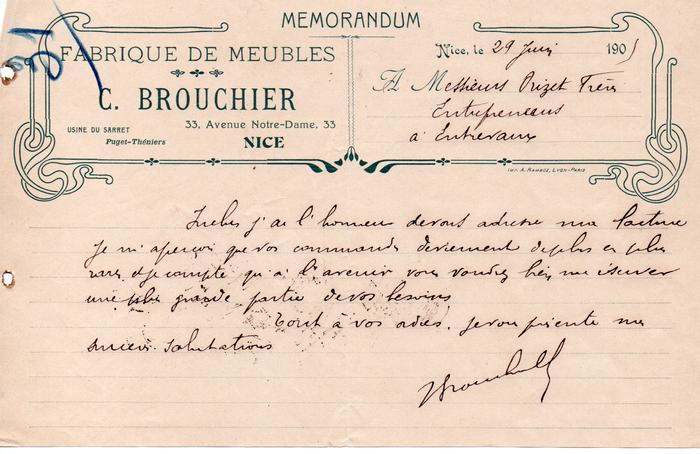 MEMORANDUM
FABRIQUE DE MEUBLES
C. BROUCHIER
33, Avenue Notre-Dame, 33
USINE DU SARRET
Puget-Théniers
NICE
Nice, le 29 Juin 1905
A Messieurs Frères
Entrepreneurs
à Entrevaux
IMP. A. RAMBOZ, LYON-PARIS
Inclus j'ai l'honneur de vous adresser ma facture
Je m'aperçoi que vos commandes deviennent de plus en plus
rares et je compte qu'à l'avenir vous voudrez bien me réserver
une plus grande partie de vos besoins
Tout à vos ordres, je vous présente mes
sincères salutations
Brouchier